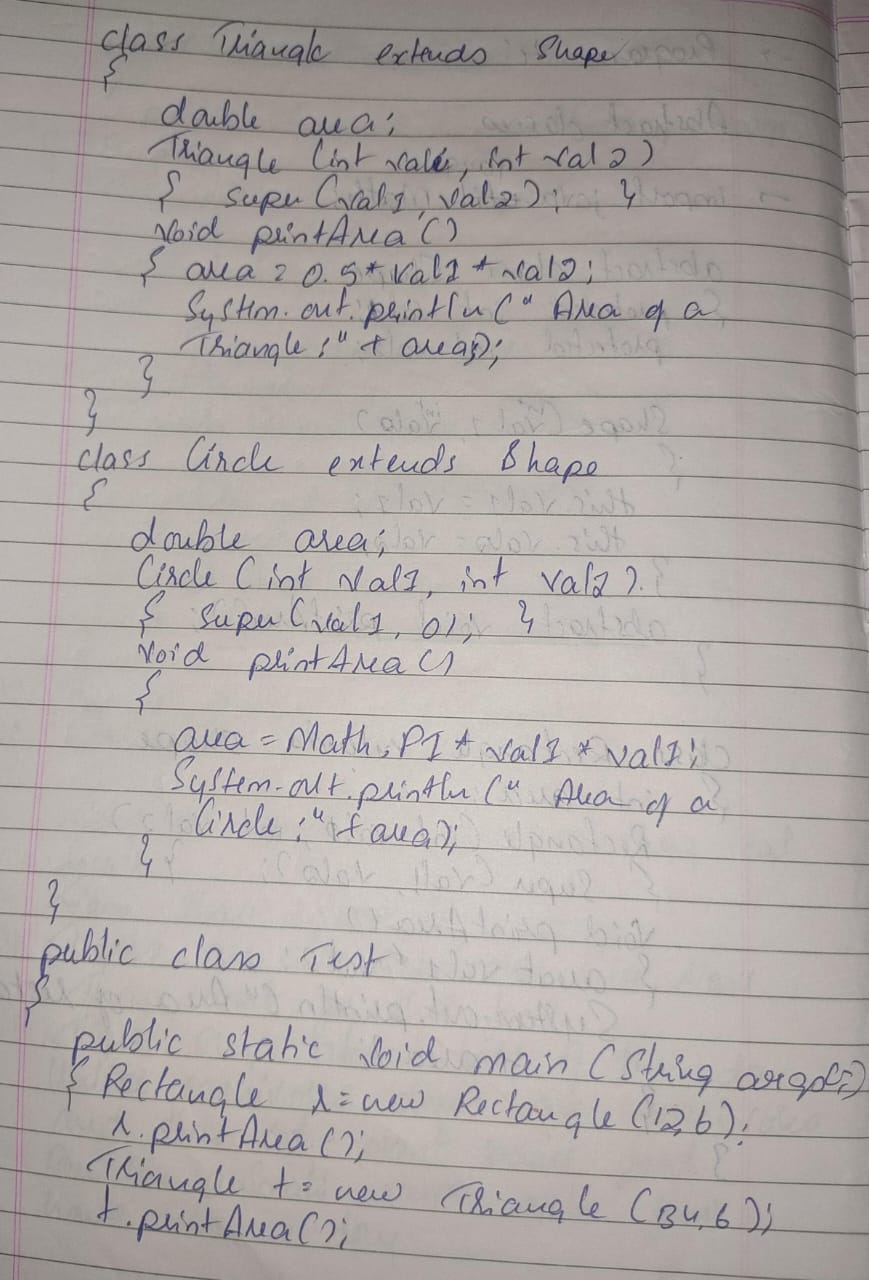 class Triangle extends Shape
{
double area;
Triangle (int val1, int val2)
{ super (val1, val2); }
void printArea ()
{ area = 0.5 * val1 * val2;
System.out.println (" Area of a
Triangle :" + area);
}
}
class Circle extends Shape
{
double area;
Circle (int val1, int val2)
{ super (val1, 0); }
void printArea ()
{
area = Math.PI * val1 * val1;
System.out.println (" Area of a
Circle :" + area);
}
}
public class Test
{
public static void main (String args[])
{ Rectangle r = new Rectangle (12,6);
r.printArea ();
Triangle t = new Triangle (34,6);
t.printArea ();